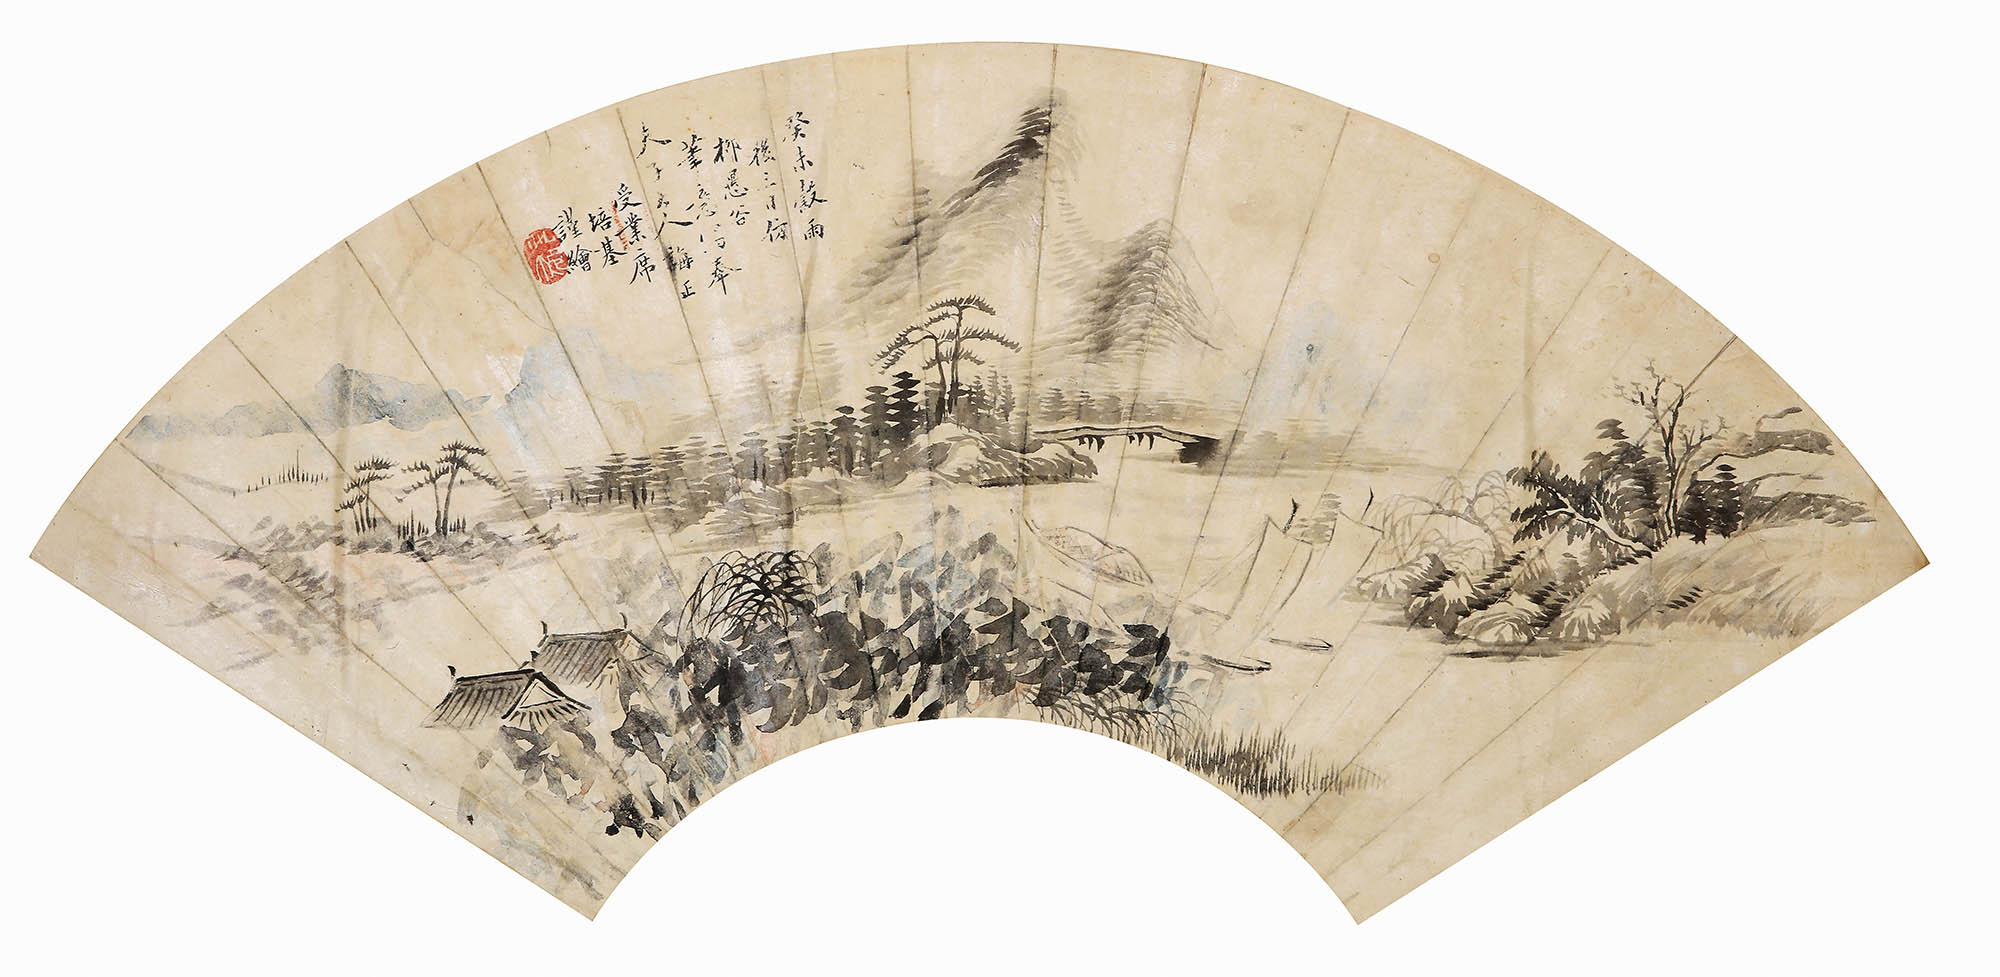 癸未穀雨
後三日仿
柳愚谷
筆意即奉
夫子大人誨正
受業席
培基
謹繪